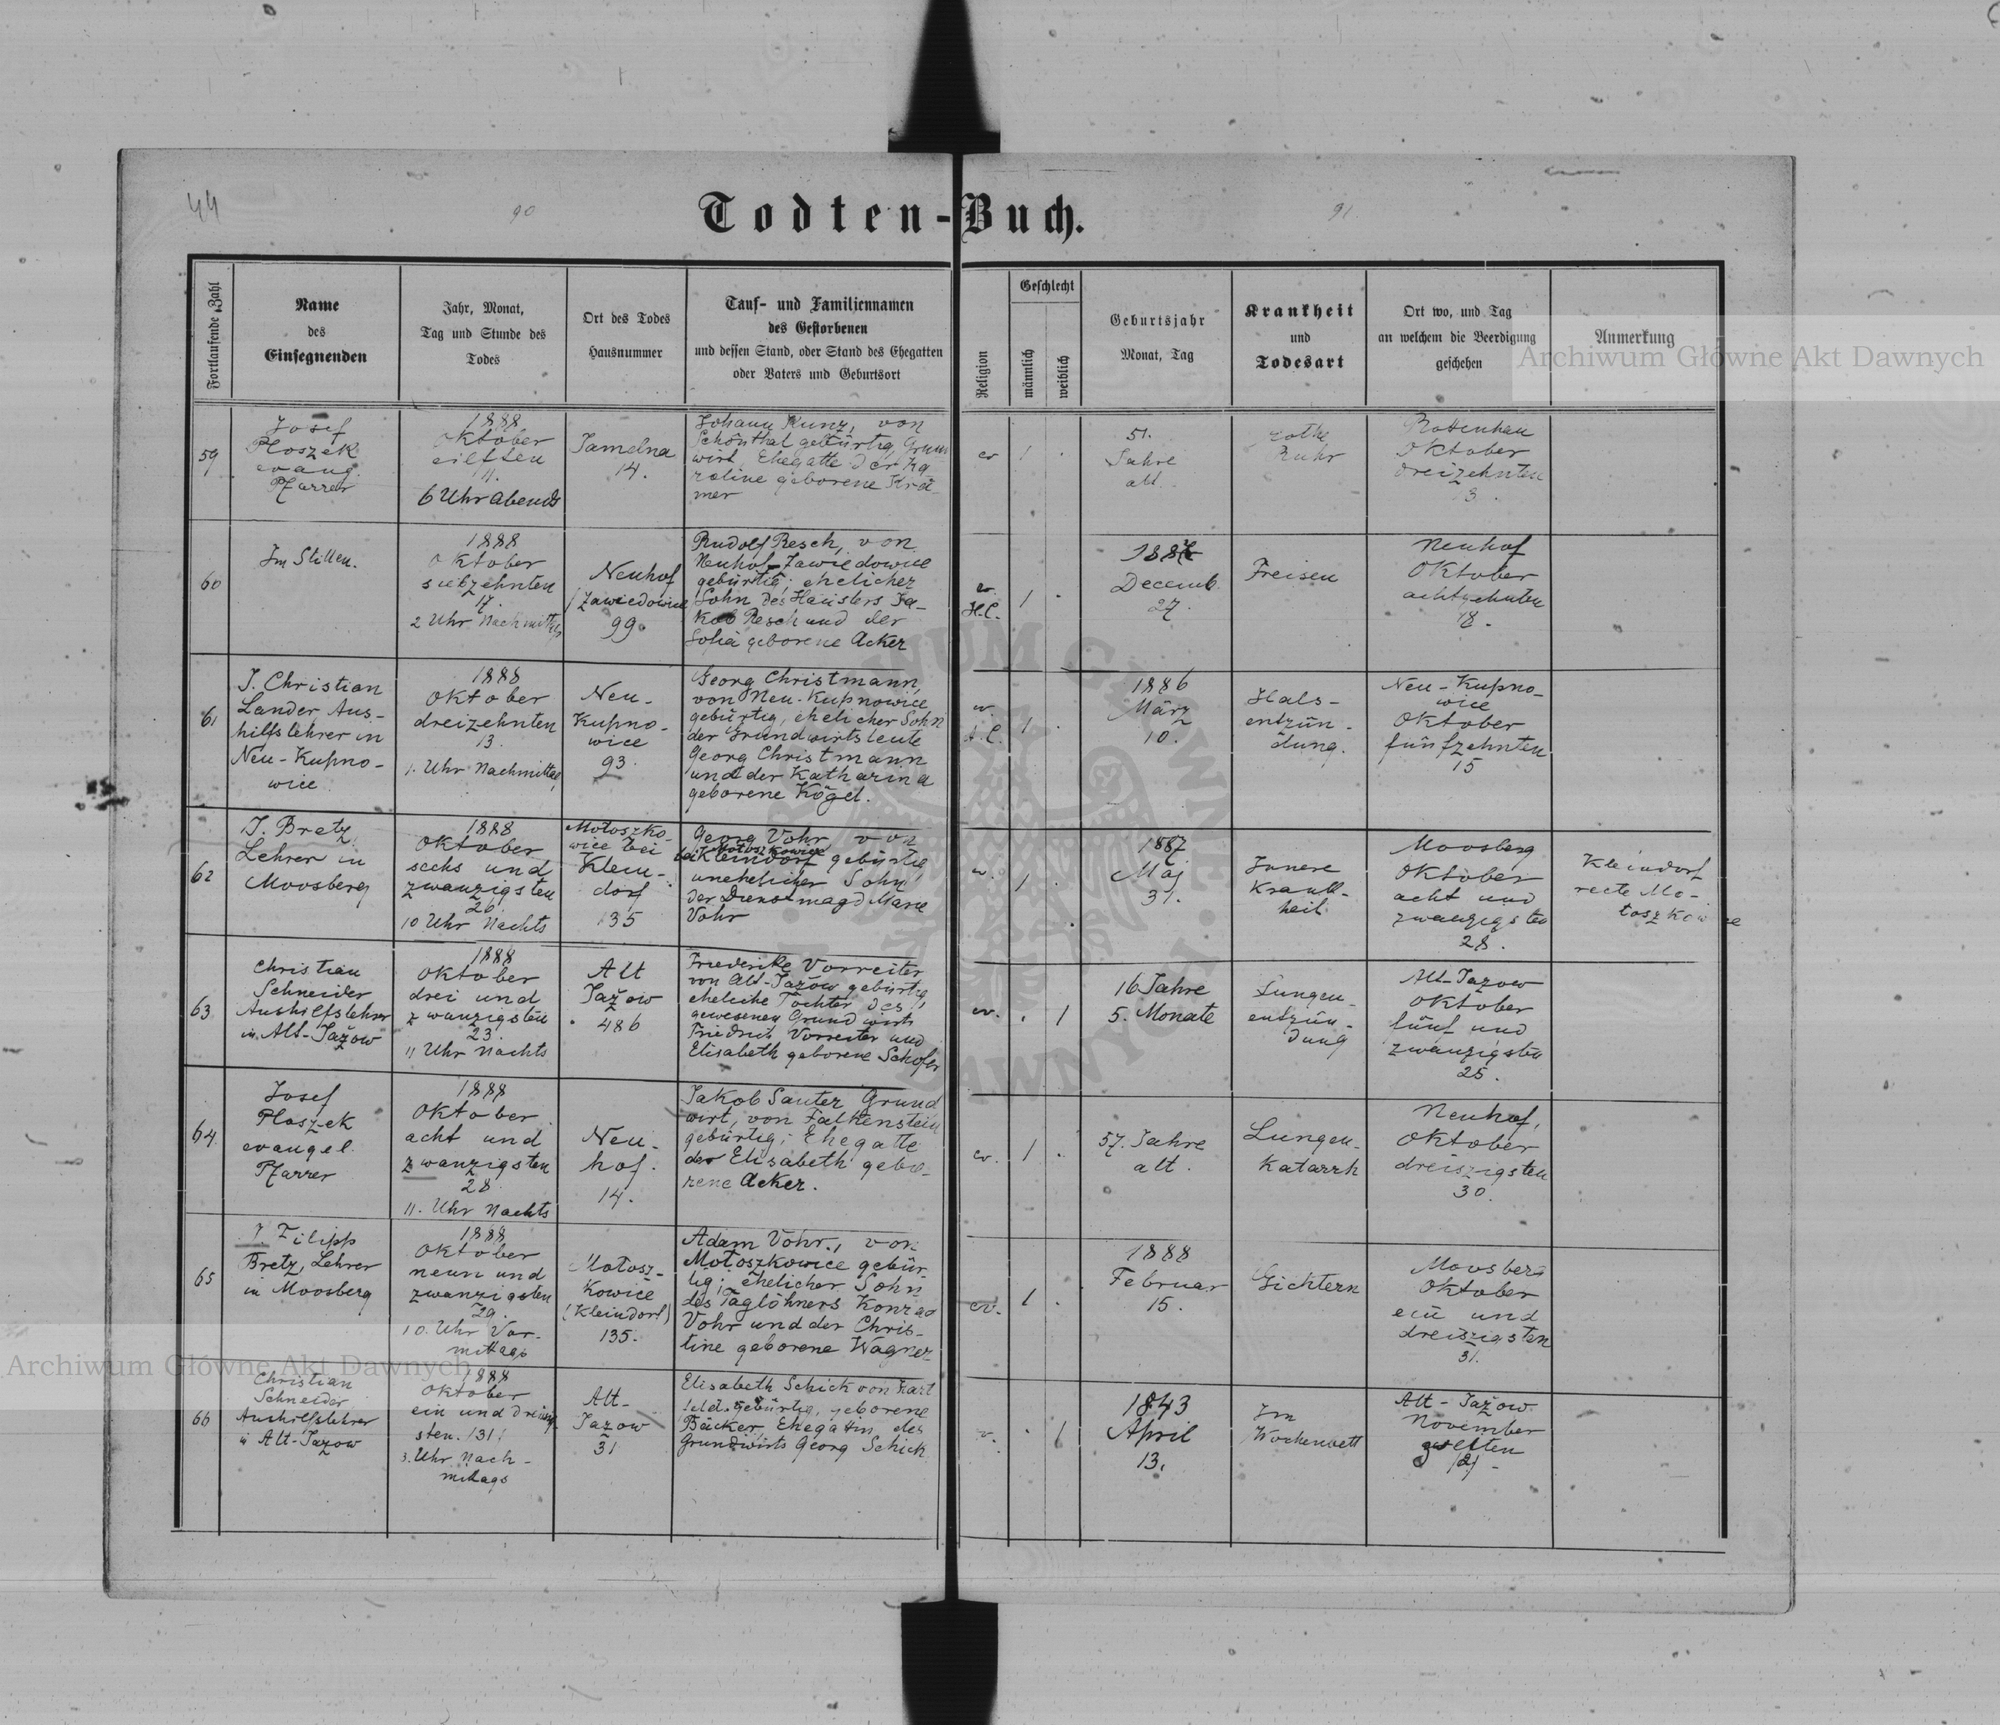 44
90
Todten-Buch.
91
Fortlaufende Zahl
Name
des
Einsegnenden
Jahr, Monat,
Tag und Stunde des
Todes
Ort des Todes
Hausnummer
Tauf- und Familiennamen
des Gestorbenen
und dessen Stand, oder Stand des Ehegatten
oder Vaters und Geburtsort
Religion
Geschlecht
männlich
weiblich
Geburtsjahr
Monat, Tag
Krankheit
und
Todesart
Ort wo, und Tag
an welchem die Beerdigung
geschehen
Anmerkung
Archiwum Główne Akt Dawnych
59
Josef
Ploszek
evang.
Pfarrer
1888
Oktober
eilften
11.
6 Uhr Abends
Jamelna
14.
Johann Kunz, von
Schönthal gebürtig, Grund
wirt Ehegatte der Ka
roline geborene Krä
mer
ev
1
51.
Jahre
alt.
rothe
Ruhr
Rottenhan
Oktober
dreizehnten
13.
60
Im Stillen.
1888
Oktober
siebzehnten
17.
2 Uhr Nachmittags
Neuhof
Zawiedowice
99.
Rudolf Resch, von
Neuhof-Zawiedowice
gebürtig; ehelicher
Sohn des Häuslers Ja-
kob Resch und der
Sofia geborene Acker
ev.
H.C.
1
1887
Decemb.
27.
Freisen
Neuhof
Oktober
achtzehnten
18.
61
J. Christian
Lander Aus-
hilfslehrer in
Neu-Kupno-
wice
1888
Oktober
dreizehnten
13.
1. Uhr Nachmittag
Neu-
Kupno-
wice
93.
Georg Christmann,
von Neu-Kupnowice
gebürtig, ehelicher Sohn
der Grundwirtsleute
Georg Christmann
und der Katharina
geborene Kögel.
ev
A.C.
1
1886
März
10.
Hals-
entzün-
dung.
Neu-Kupno-
wice
Oktober
fünfzehnten
15
62
J. Bretz
Lehrer in
Moosberg
1888
Oktober
sechs und
zwanzigsten
26.
10 Uhr Nachts
Motoszko-
wice bei
Klein-
dorf
135
Georg Vohr von
Motoszkowice
bei Kleindorf gebürtig
unehelicher Sohn
der Dienstmagd Marie
Vohr
ev.
1
1887
Maj
31.
Innere
Krank-
heit.
Moosberg
Oktober
acht und
zwanzigsten
28.
Kleindorf
recte Mo-
toszkowice
63
Christian
Schneider
Aushilfslehrer
in Alt-Jažow
1888
Oktober
drei und
zwanzigsten
23.
11 Uhr Nachts
Alt
Jažow
486
Friederike Vorreiter
von Alt-Jažow gebürtig
eheliche Tochter des
gewesenen Grundwirts
Friedrich Vorreiter und
Elisabeth geborene Schöfer
ev.
1
16 Jahre
5. Monate
Lungen-
entzün-
dung
Alt-Jazow
Oktober
fünf und
zwanzigsten
25.
64.
Josef
Ploszek
evangel.
Pfarrer
1888
Oktober
acht und
zwanzigsten
28.
11. Uhr Nachts
Neu-
hof.
14.
Jakob Sauter Grund
wirt, von Falkenstein
gebürtig; Ehegatte
der Elisabeth gebo-
rene Acker.
ev.
1
57. Jahre
alt.
Lungen-
Katarrh
Neuhof,
Oktober
dreiszigsten
30.
65
J. Filipp
Bretz, Lehrer
in Moosberg
1888
Oktober
neun und
zwanzigsten
29.
10. Uhr Vor-
mittags
Motosz-
kowice
(Kleindorf)
135.
Adam Vohr, von
Motoszkowice gebür-
tig; ehelicher Sohn
des Taglöhners Konrad
Vohr und der Chris-
tine geborene Wagner
ev.
1
1888
Februar
15.
Gichtern
Moosberg
Oktober
ein und
dreiszigsten
31.
Archiwum Główne Akt Dawnych
66
Christian
Schneider
Aushilfslehrer
in Alt-Jazow
1888
Oktober
ein und dreiszig
sten. 131.
3. Uhr Nach-
mittags
Alt-
Jazow
31
Elisabeth Schick von Hart
feld gebürtig, geborene
Bäcker, Ehegattin des
Grundwirts Georg Schick
1
1843
April
13.
Im
Wochenbett
Alt-Jažow
November
zweiten